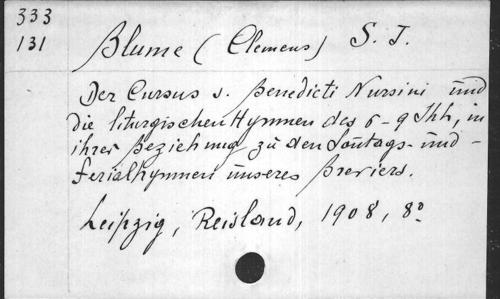 333
131
Blume (Clemens) S. J.
Der Cursus s. Benedicti Nursini und
die liturgischen Hymnen des 6-9 Jhh, in
ihrer Beziehung zu den Sontags- und -
Ferialhymnen unseres Breviers.
Leipzig, Reisland, 1908, 8º